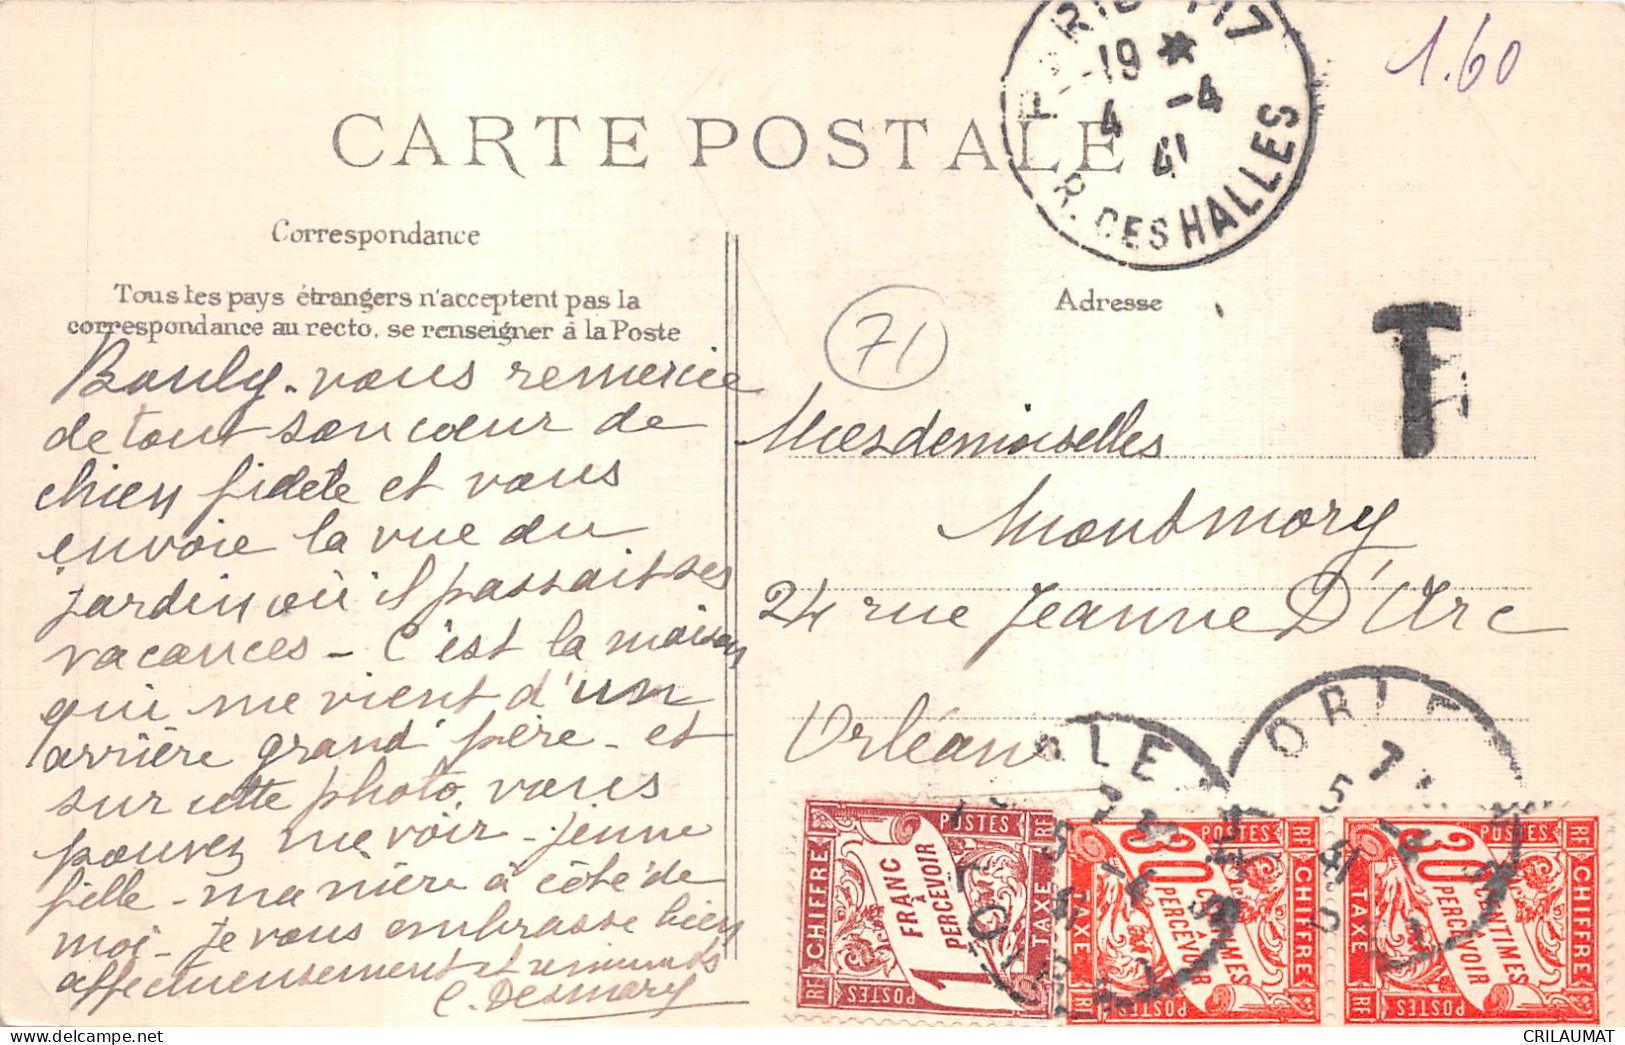 CARTE POSTALE
R. DES HALLES
19
4 -4
41
1.60
Correspondance
Tous les pays étrangers n'acceptent pas la
correspondance au recto, se renseigner à la Poste
Adresse
71
T
Bouly - vous remercie
de tout son cœur de
chien fidèle et vous
envoie la vue du
jardin où il passait ses
vacances - C'est la maison
qui me vient d'un
arrière grand père - et
sur cette photo, vous
pouvez me voir - jeune
fille - ma nière à côté de
moi - Je vous embrasse bien
affectueusement et
C. Desmory
Mesdemoiselles
Montmory
24 rue Jeanne D'Arc
Orléans
CHIFFRE TAXE
POSTES
RF
1 FRANC
À
PERCEVOIR
30 CENTIMES
À PERCEVOIR
CHIFFRE TAXE
POSTES
RF
30 CENTIMES
À PERCEVOIR
CHIFFRE TAXE
POSTES
RF
www.delcampe.net
CRILAUMAT